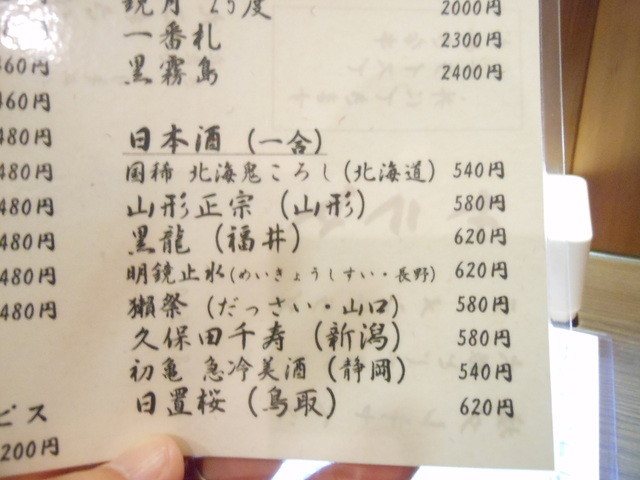 鏡月 25度 2000円
一番札 2300円
黒霧島 2400円
日本酒 (一合)
国稀 北海鬼ころし(北海道) 540円
山形正宗 (山形) 580円
黒龍 (福井) 620円
明鏡止水(めいきょうしすい・長野) 620円
獺祭 (だっさい・山口) 580円
久保田千寿 (新潟) 580円
初亀 急冷美酒 (静岡) 540円
日置桜 (鳥取) 620円
円
460円
460円
480円
480円
480円
480円
480円
480円
ビス
200円